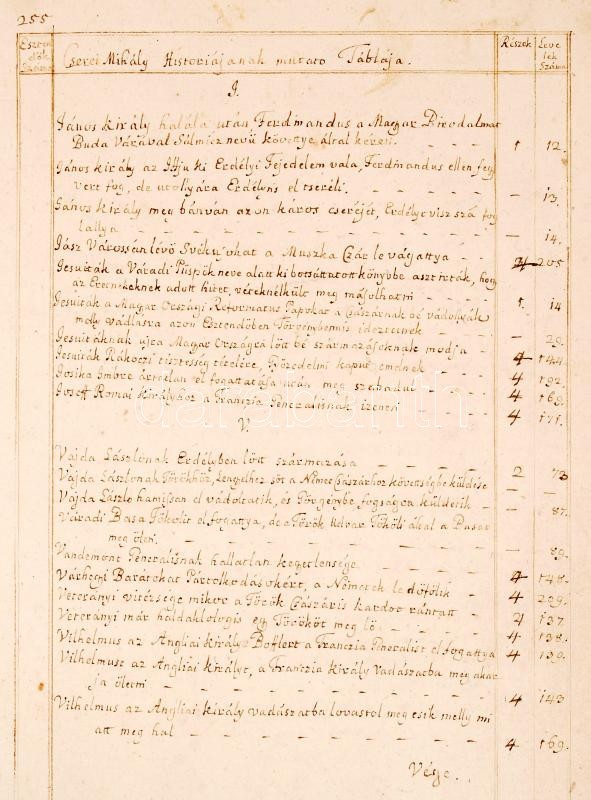 255.
Eszten dők Száma
Cserei Mihály Historiájának mutato Táblája.
Részek
Levelek Száma
J.
János király halála után Ferdinandus a Magyar Birodalmat
Buda Várával Salmicz nevű követtye által kéreti. 1 12.
János király az Ifju ki Erdélyi Fejedelem vala, Ferdinandus ellen fegy
vert fog, de utollyára Erdélyis el tseréli. 13.
János király meg bánván azon káros cseréjét, Erdélyt visz szá fog
lallya 14.
Jász Városán lévő Svékusokat a Muszka Czár levágattya 4 205
Jesuiták a Váradi Püspök neve alatt ki botsáttatott könyvbe aszt irták, hogy
az Eretnekeknek adott hitet, véteknélkült meg másolhatni 1. 14
Jesuiták a Magyar Országi Reformatus Papokat a Császárnak bé vádolyák
melly vádlásra azon Esztendőben Törvénybenis idéztetnek 29.
Jesuitáknak ujra Magyar Országra lött bé származásoknak modja 4 144.
Jesuiták Rákoczi tisztesség tételére, Győzedelmi kaput emelnek 4 192.
Josika Imbre ártatlan el fogattatása után meg szabadul 4 169.
Joseff Romai királyhoz a Franczia Generalisnak izeneti 4 171.
V.
Vajda Lászlonak Erdélyben lött származása 2 73
Vajda Lászlonak Törökhöz, Lengyelhez sőt a Német Császárhoz követségbe küldése
Vajda Lászlo hamissan el vádoltatik, és Törvénybe, fogságra küldetik 87.
Váradi Basa Tökölit el fogattya, de a Török Udvar Tököli által a Basát
meg öleti. 89.
Vandemont Generalisnak hallatlan kegetlensége 4 148.
Várhegyi Barátokat Pártolkodásokért, a Németek ledöfölik 4 209.
Veterányi vitézsége mikor a Török Császáris kardot rántatt 2 137
Veterányi már haldaklologis egy Törököt meg lő 4 138.
Vilhelmus az Angliai Király Bofflert a Franczia Generalist el fogattya 4 139.
Vilhelmust az Angliai királyt, a Franczia Király Vadászatba meg akar
ja öletni 4 143
Vilhelmus az Angliai király vadászatba lovastol meg esik melly mi
att meg hal 4 169.
Vége.
darabanth